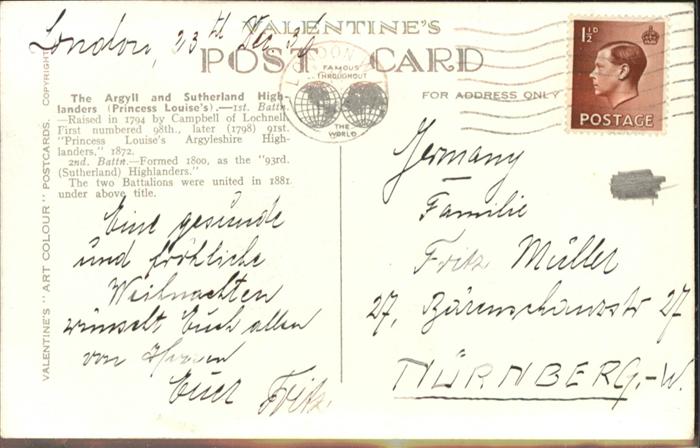 London, 23th Dec 36
VALENTINE'S
POST CARD
FAMOUS
THROUGHOUT
THE
WORLD
FOR ADDRESS ONLY
1½D
POSTAGE
VALENTINE'S "ART COLOUR" POSTCARDS. COPYRIGHT
The Argyll and Sutherland High-
landers (Princess Louise's).—1st. Battn.
—Raised in 1794 by Campbell of Lochnell.
First numbered 98th., later (1798) 91st.
"Princess Louise's Argyleshire High-
landers," 1872.
2nd. Battn.—Formed 1800, as the "93rd.
(Sutherland) Highlanders."
The two Battalions were united in 1881
under above title.
Eine gesunde
und fröhliche
Weihnachten
wünscht Euch allen
von Herzen
Euer Fritz
Germany
Familie
Fritz Müller
27, Bärenschanzstr 27
NÜRNBERG.-W.